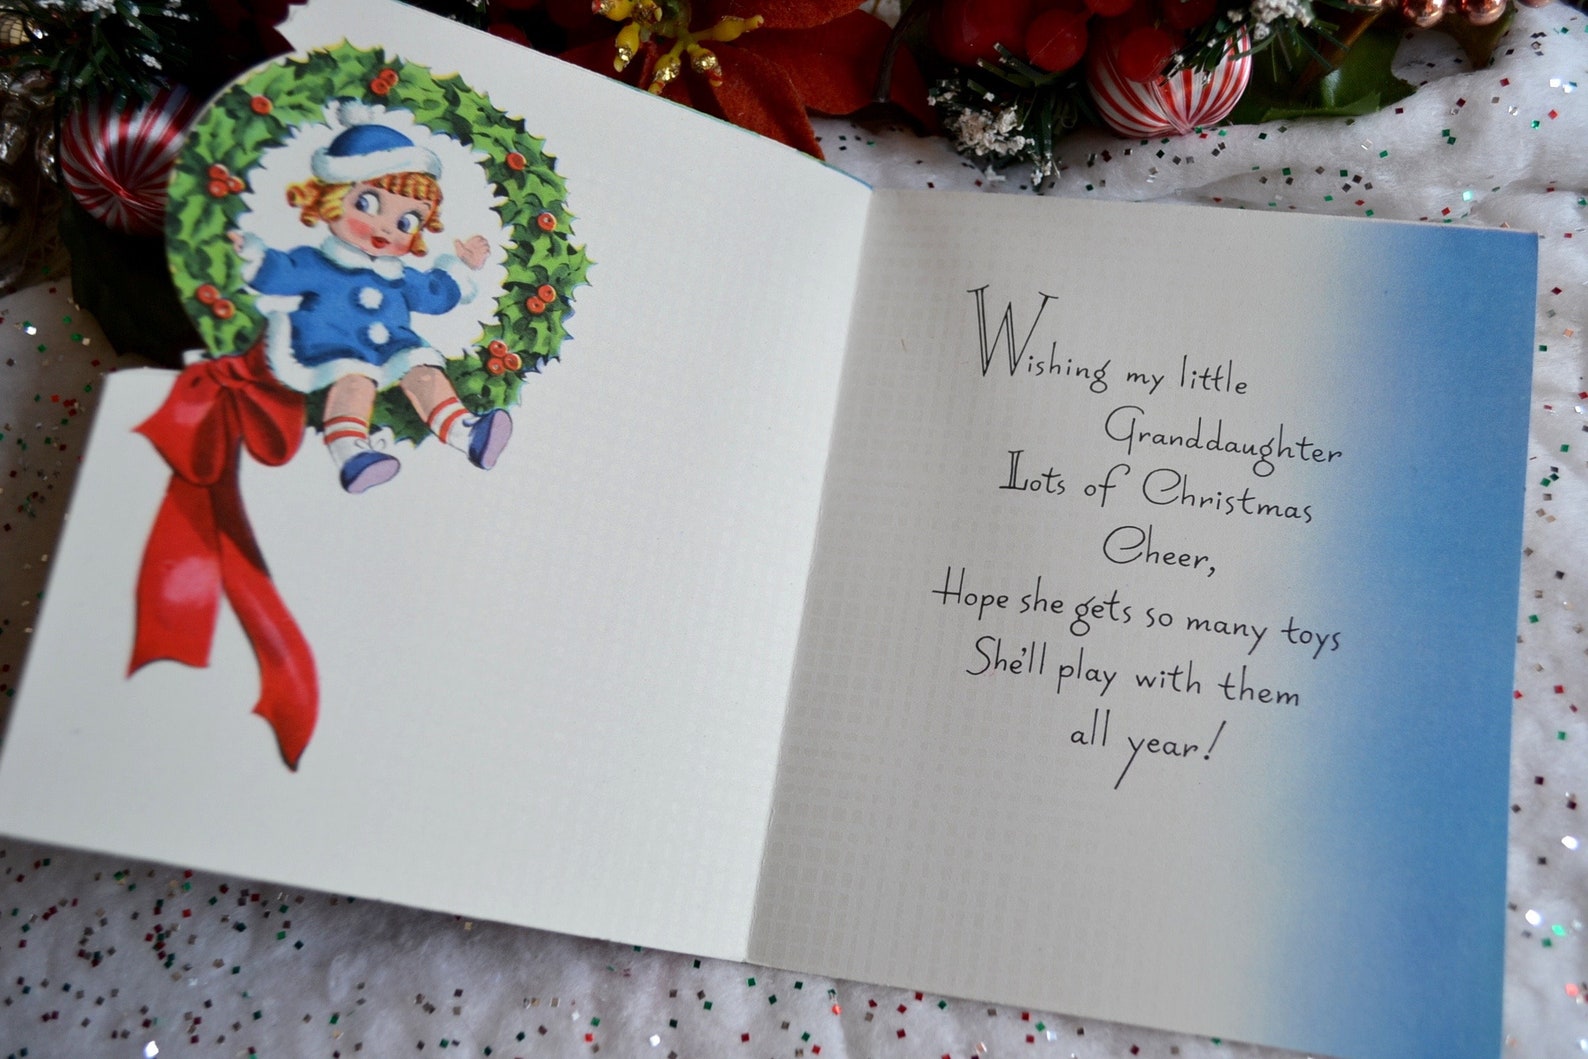 Wishing my little
Granddaughter
Lots of Christmas
Cheer,
Hope she gets so many toys
She'll play with them
all year!